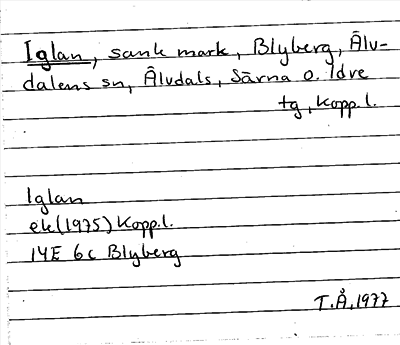 Iglan, sank mark, Blyberg, Älv-
dalens sn, Älvdals, Särna o. Idre
tg, Kopp.l.
Iglan
ek(1975) Kopp.l.
14E 6c Blyberg
T.Å, 1977